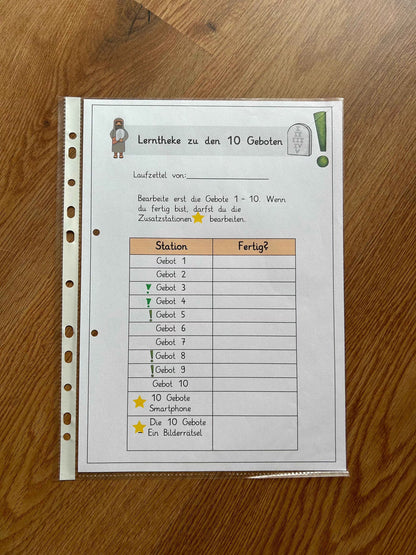 Lerntheke zu den 10 Geboten
I
II
III
IV
V
Laufzettel von:
Bearbeite erst die Gebote 1 - 10. Wenn
du fertig bist, darfst du die
Zusatzstationen bearbeiten.
Station Fertig?
Gebot 1
Gebot 2
Gebot 3
Gebot 4
Gebot 5
Gebot 6
Gebot 7
Gebot 8
Gebot 9
Gebot 10
10 Gebote
Smartphone
Die 10 Gebote
Ein Bilderrätsel